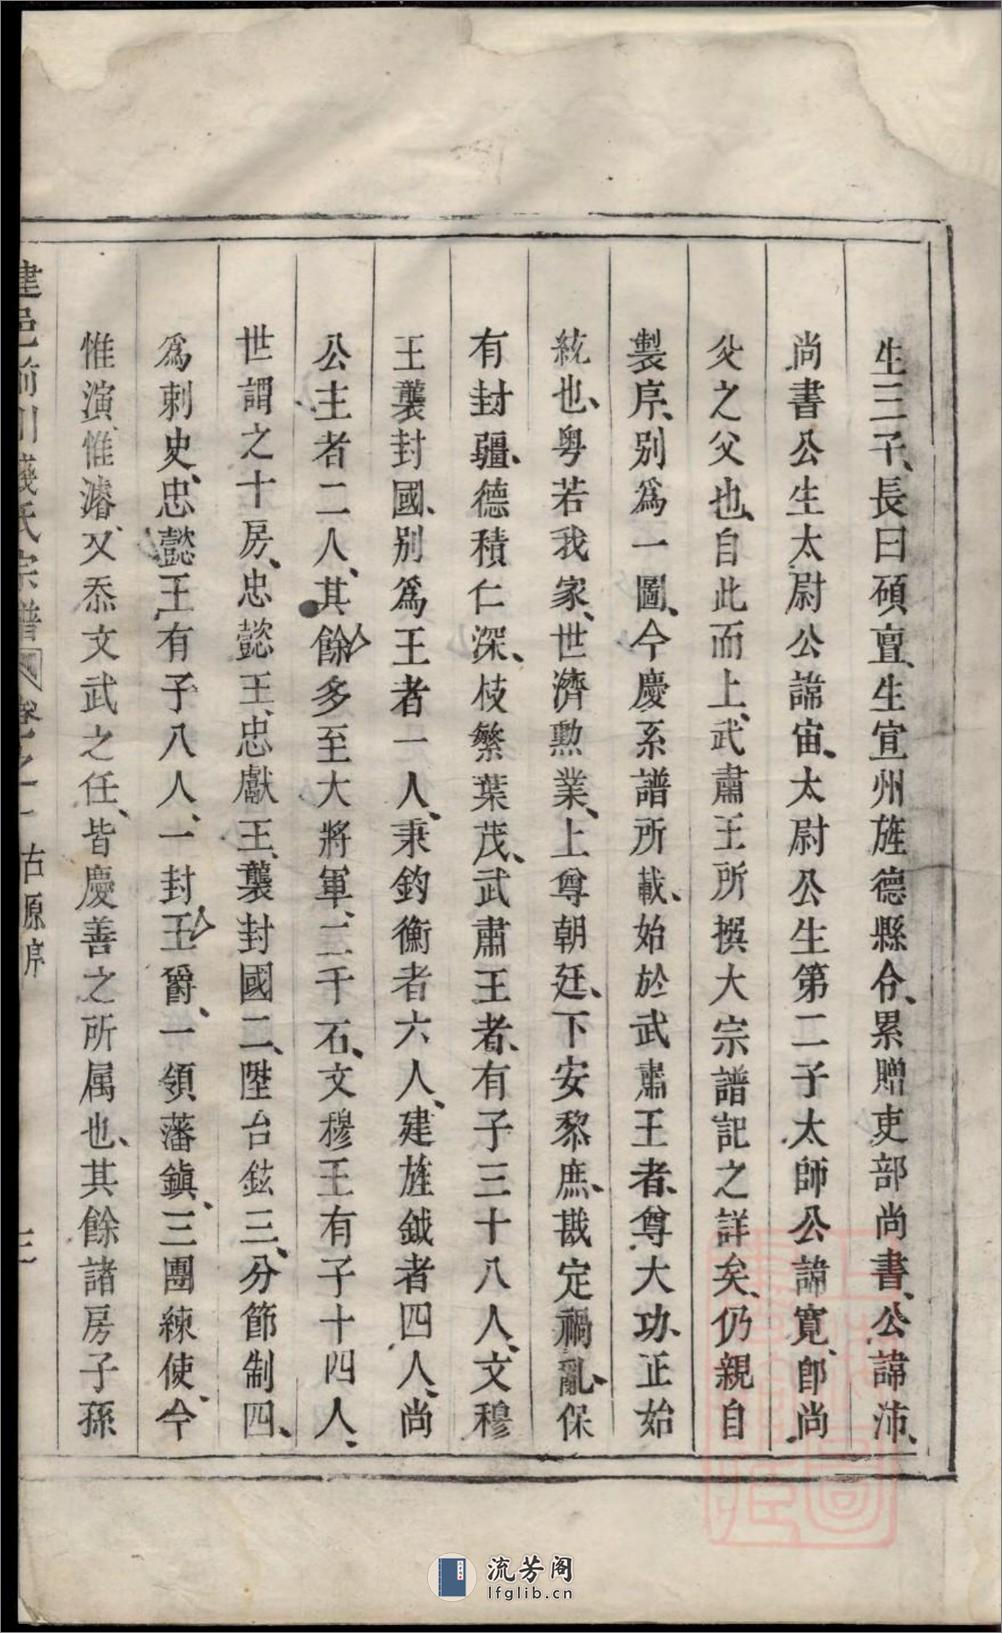 生三子、長曰碩亶、生宣州旌德縣令、累贈吏部尚書、公諱沛、
尚書公生太尉公諱宙、太尉公生第二子太師公諱寬、卽尚
父之父也、自此而上、武肅王所撰大宗譜記之詳矣、仍親自
製序、別爲一圖、今慶系譜所載、始於武肅王者、尊大功、正始
統也、粤若我家、世濟勲業、上尊朝廷、下安黎庶、戡定禍亂、保
有封疆、德積仁深、枝繁葉茂、武肅王者、有子三十八人、文穆
王襲封國、別爲王者一人、秉鈞衡者六人、建旌鉞者四人、尚
公主者二人、其餘多至大將軍、二千石、文穆王有子十四人、
世謂之十房、忠懿王、忠獻王、襲封國二、陞台鉉三、分節制四、
爲刺史、忠懿王有子八人、一封王爵、一領藩鎭、三團練使、今
惟演、惟濬、又忝文武之任、皆慶善之所属也、其餘諸房子孫
建邑前川錢氏宗譜 卷之一 古源序 三
流芳阁
lfglib.cn